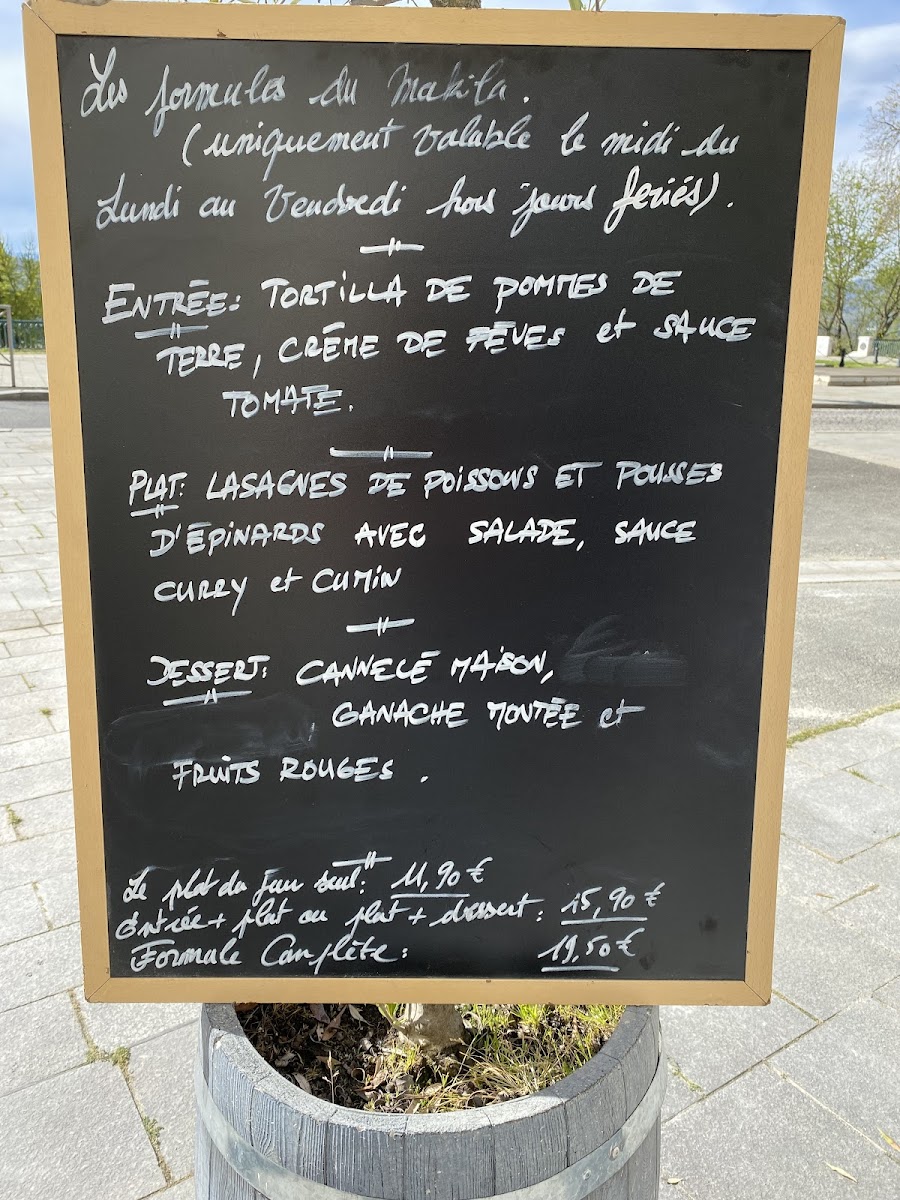 Les formules du Makila.
(uniquement valable le midi du
Lundi au Vendredi hors jours feriés).
ENTRÉE: TORTILLA DE POMMES DE
TERRE, CRÉME DE FÉVES et SAUCE
TOMATE.
PLAT: LASAGNES DE POISSONS ET POUSSES
D'ÉPINARDS AVEC SALADE, SAUCE
CURRY et CUMIN
DESSERT: CANNELÉ MAISON,
GANACHE MONTÉE et
FRUITS ROUGES.
Le plat du jour seul: 11,90 €
Entrée + plat ou plat + dessert: 15,90 €
Formule Complète: 19,50 €